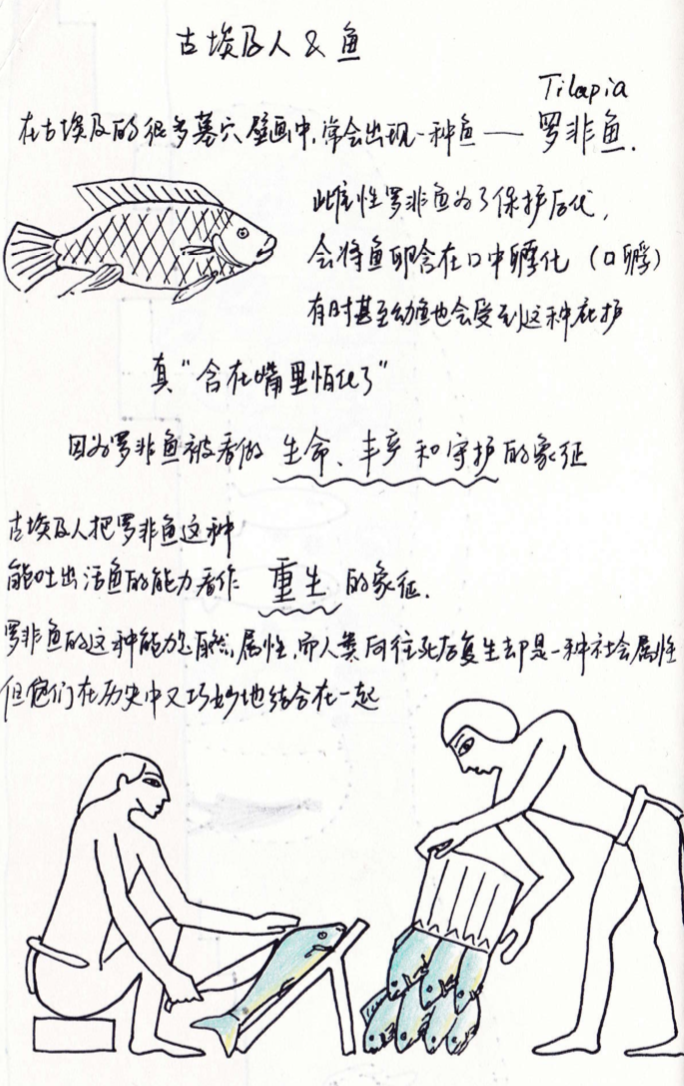 古埃及人 & 鱼
Tilapia
在古埃及的很多墓穴壁画中,常会出现一种鱼——罗非鱼.
雌性罗非鱼为了保护后代,
会将鱼卵含在口中孵化(口孵)
有时甚至幼鱼也会受到这种庇护
真“含在嘴里怕化了”
因为罗非鱼被看做 生命、丰产和守护的象征
古埃及人把罗非鱼这种
能吐出活鱼的能力看作 重生 的象征.
罗非鱼的这种能力是自然属性,而人类向往死后复生却是一种社会属性
但他们在历史中又巧妙地结合在一起